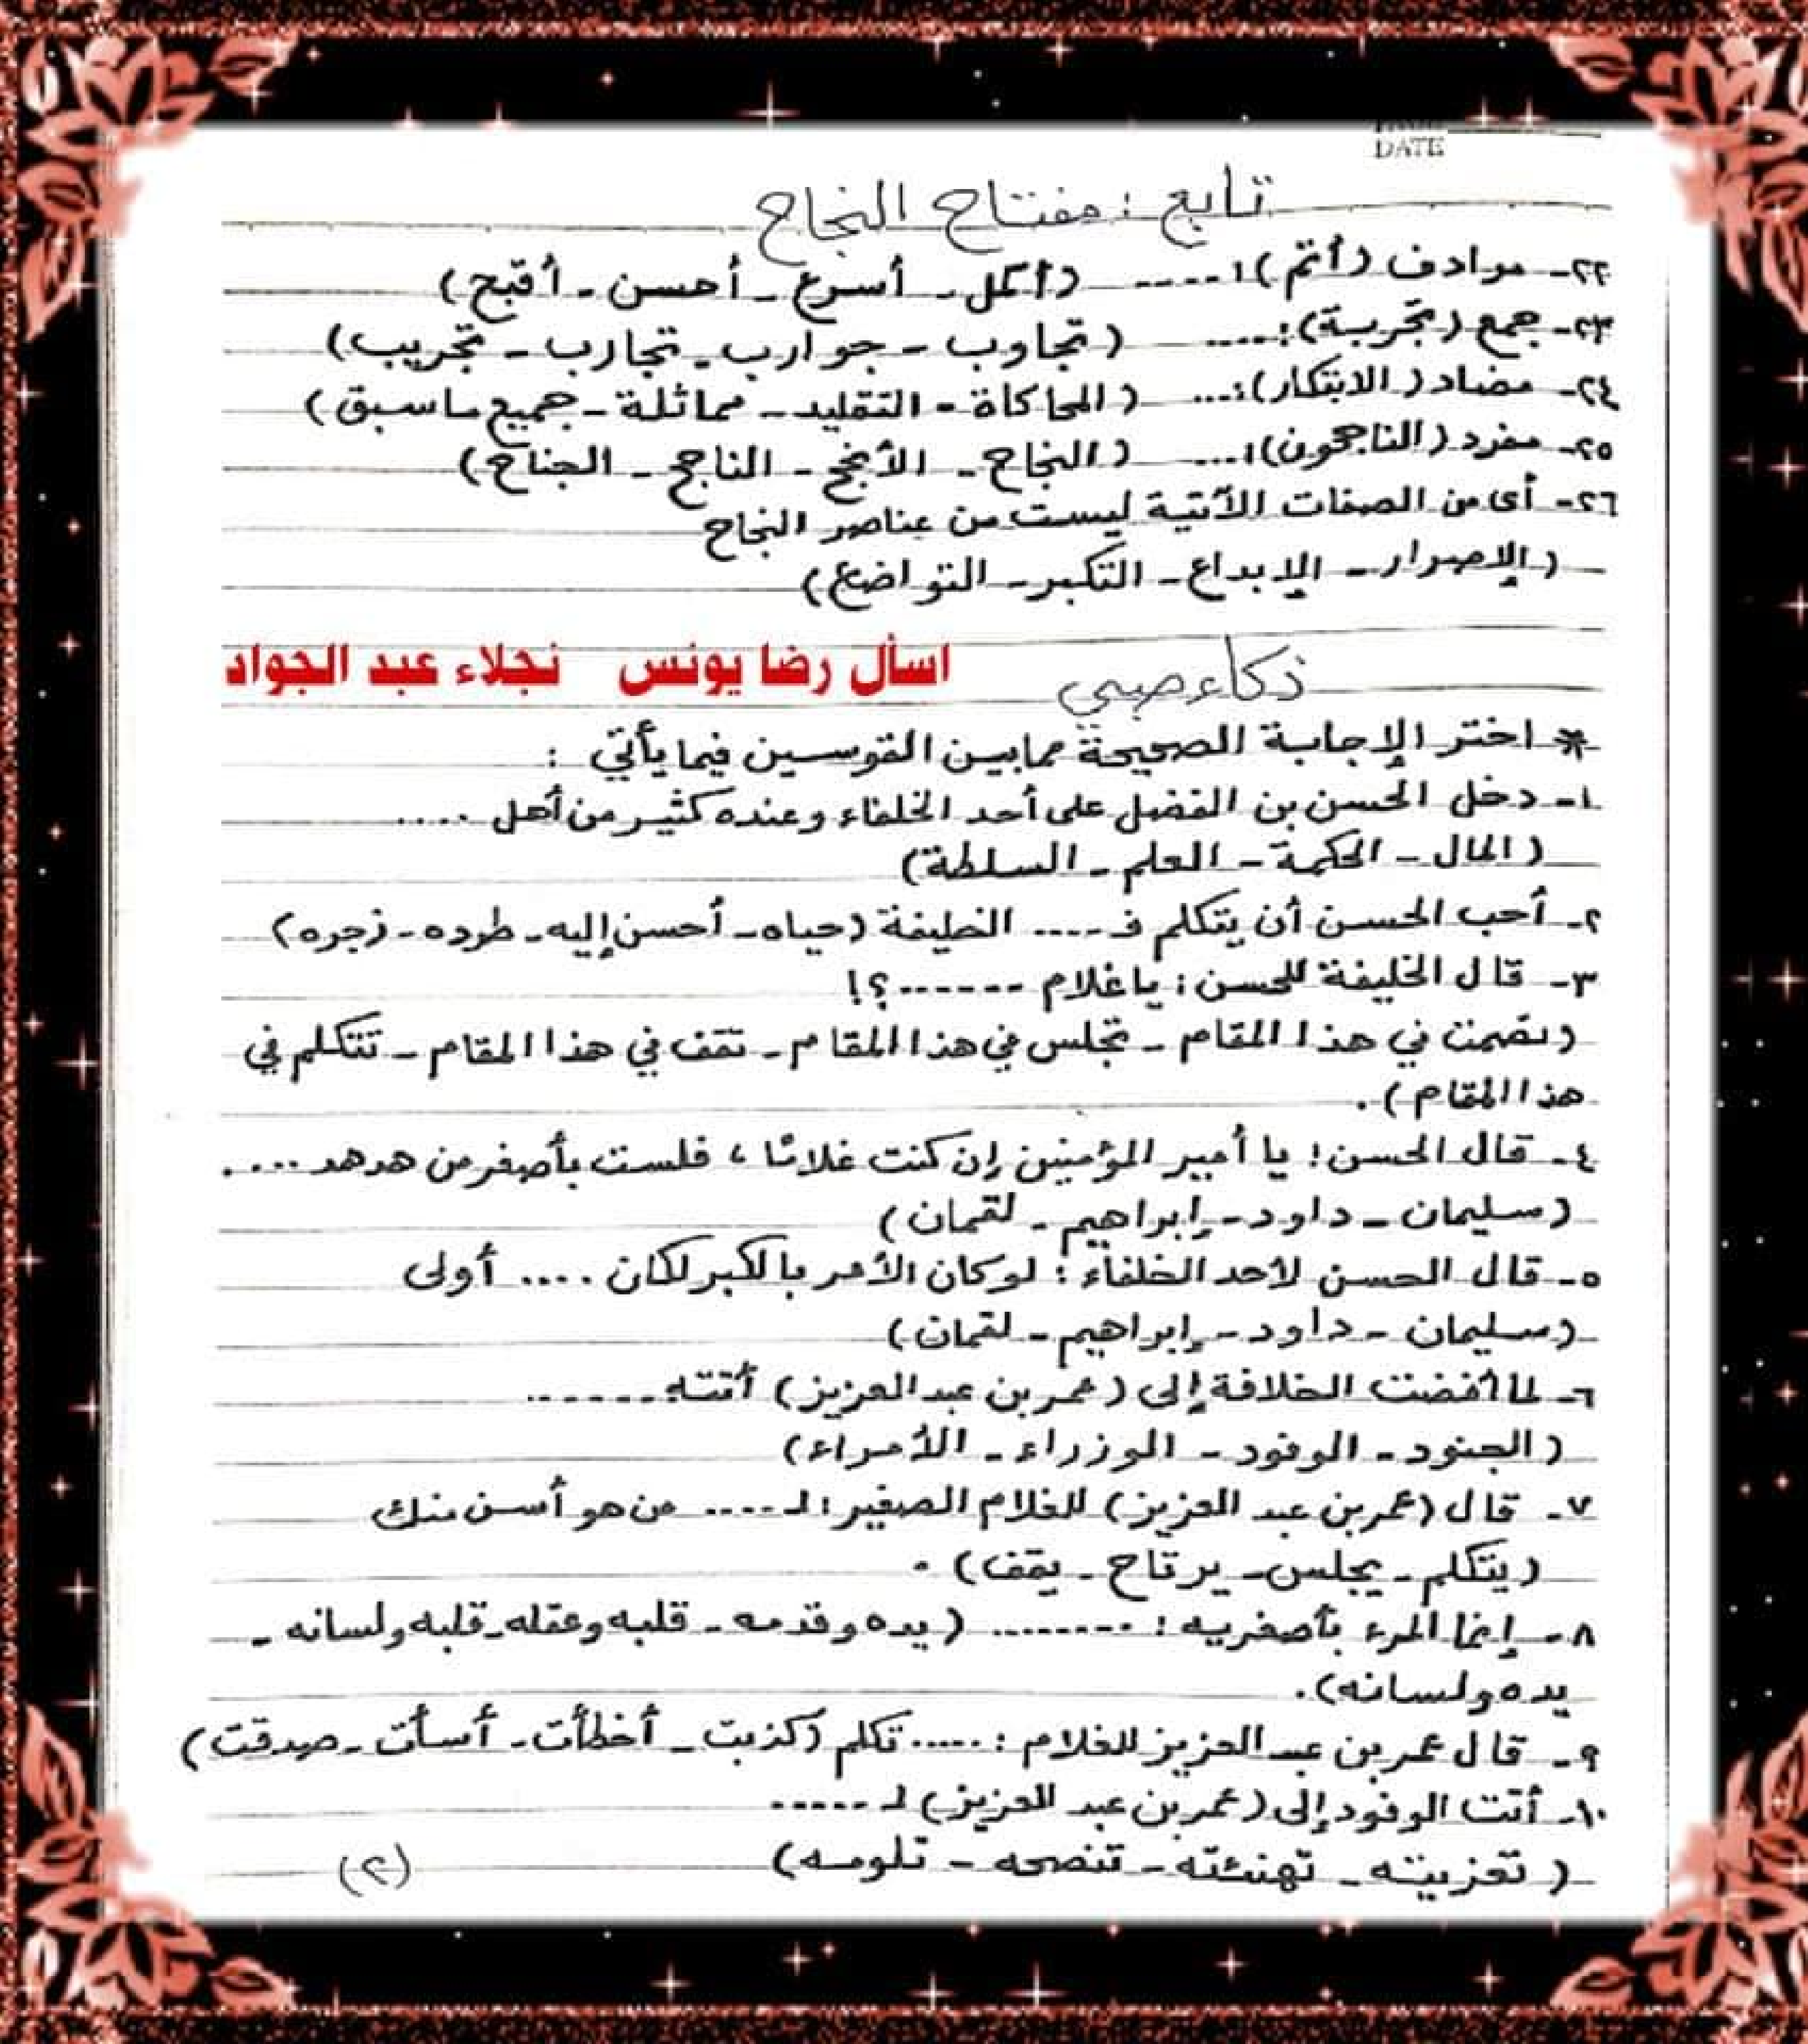 DATE
تابع : مفتاح النجاح
٢٢- مرادف (أتم) : ..... (أكمل - أسرع - أحسن - أقبح)
٢٣- جمع (تجربة) : ..... (تجاوب - جوارب - تجارب - تجريب)
٢٤- مضاد (الابتكار) : .... (المحاكاة - التقليد - مماثلة - جميع ما سبق)
٢٥- مفرد (الناجحون) : .... (النجاح - الأنجح - الناجح - الجناح)
٢٦- أى من الصفات الآتية ليست من عناصر النجاح
(الإصرار - الإبداع - التكبر - التواضع)
ذكاء صبي
اسأل رضا يونس نجلاء عبد الجواد
* اختر الإجابة الصحيحة مما بين القوسين فيما يأتي :
١- دخل الحسن بن الفضل على أحد الخلفاء وعنده كثير من أهل .....
(المال - الحكمة - العلم - السلطة)
٢- أحب الحسن أن يتكلم فـ .... الخليفة (حياه - أحسن إليه - طرده - زجره)
٣- قال الخليفة للحسن : يا غلام ......؟!
(تصمت في هذا المقام - تجلس في هذا المقام - تقف في هذا المقام - تتكلم في
هذا المقام) .
٤- قال الحسن : يا أمير المؤمنين إن كنت غلامًا ، فلست بأصغر من هدهد .....
(سليمان - داود - إبراهيم - لقمان)
٥- قال الحسن لأحد الخلفاء : لو كان الأمر بالكبر لكان .... أولى
(سليمان - داود - إبراهيم - لقمان)
٦- لما أفضت الخلافة إلى (عمر بن عبد العزيز) أتته .......
(الجنود - الوفود - الوزراء - الأمراء)
٧- قال (عمر بن عبد العزيز) للغلام الصغير : لـ .... من هو أسن منك
(يتكلم - يجلس - يرتاح - يقف) .
٨- إنما المرء بأصغريه : ........ (يده وقدمه - قلبه وعقله - قلبه ولسانه -
يده ولسانه) .
٩- قال عمر بن عبد العزيز للغلام : ..... تكلم (كذبت - أخطأت - أسأت - صدقت)
١٠- أتت الوفود إلى (عمر بن عبد العزيز) لـ .....
(تعزيته - تهنئته - تنصحه - تلومه)
(٢)